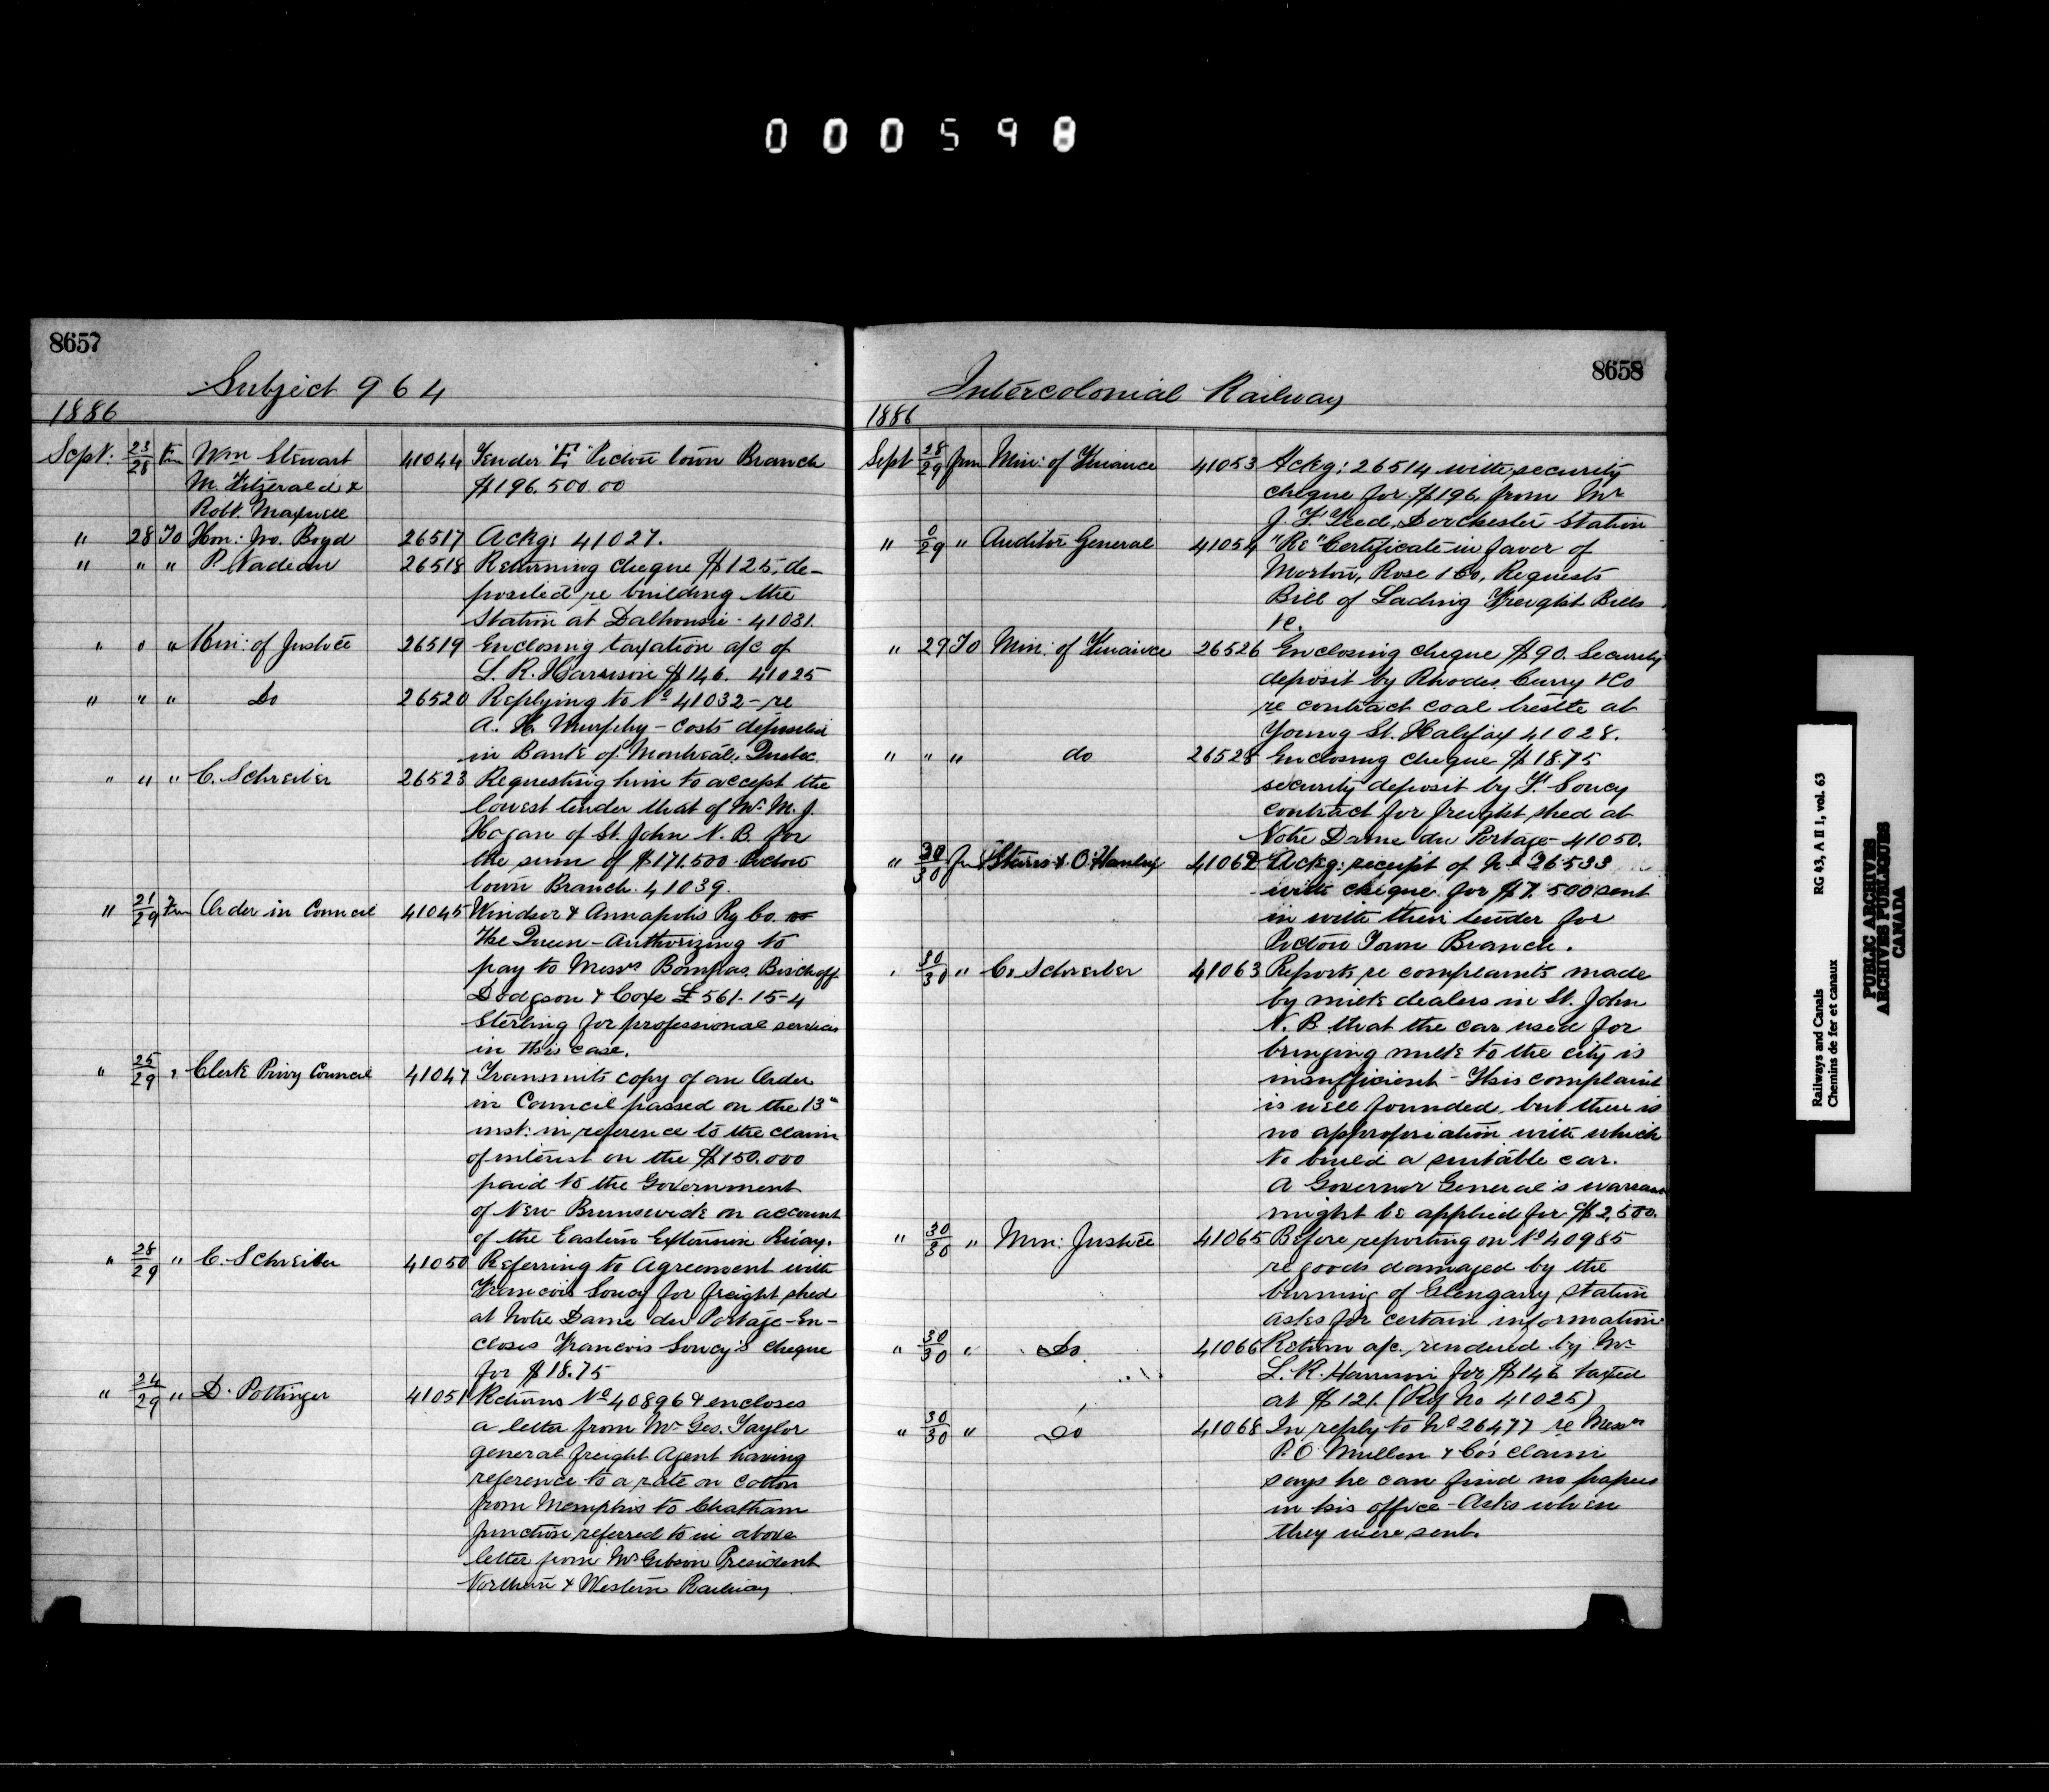 000598
8657
Subject 964
1886
Sept. 23/28 Fm Wm Stewart 41044 Tender "E" Pictou Town Branch
M. Fitzgerald & $196.500.00
Robt. Maxwell
" 28 To Hon: Jno. Boyd 26517 Ackg: 41027.
" " " P. Nadeau 26518 Returning cheque $125, de-
posited re building the
Station at Dalhousie - 41031.
" " " Min: of Justice 26519 Enclosing taxation a/c of
L. R. Harrison $146. 41025
" " " Do 26520 Replying to No 41032 - re
A. H. Murphy - costs deposited
in Bank of Montreal, Quebec.
" " " C. Schreiber 26523 Requesting him to accept the
lowest tender that of Mr. M. J.
Hogan of St. John N. B. for
the sum of $171.500 Pictou
Town Branch. 41039.
" 21/29 Fm Order in Council 41045 Windsor & Annapolis Ry Co. vs
The Queen - Authorizing to
pay to Messrs Bompas, Bischoff
Dodgson & Coxe £561-15-4
Sterling for professional services
in this case.
" 25/29 " Clerk Privy Council 41047 Transmits copy of an Order
in Council passed on the 13th
inst: in reference to the claim
of interest on the $150.000
paid to the Government
of New Brunswick on account
of the Eastern Extension Rway.
" 28/29 " C. Schreiber 41050 Referring to Agreement with
Francois Soucy for freight shed
at Notre Dame du Portage - En-
closes Francois Soucy's cheque
for $18.75
" 24/29 " D. Pottinger 41051 Returns No 40896 & encloses
a letter from Mr Geo. Taylor
general freight Agent having
reference to a rate on cotton
from Memphis to Chatham
Junction referred to in above
letter from Mr Gibson President
Northern & Western Railway
8658
Intercolonial Railway
1886
Sept 28/29 Fm Min: of Finance 41053 Ackg: 26514 with security
cheque for $196 from Mr
J. F. Teed, Dorchester Station
" 0/29 " Auditor General 41054 "Re" Certificate in favor of
Morton, Rose & Co, Requests
Bill of Lading Freight Bills
&c.
" 29 To Min: of Finance 26526 Enclosing cheque $90. Security
deposit by Rhodes, Curry & Co
re contract coal trestle at
Young St. Halifax 41028.
" " " do 26528 Enclosing cheque $18.75
security deposit by F. Soucy
contract for freight shed at
Notre Dame du Portage - 41050.
" 30/30 Fm Starrs & O'Hanly 41062 Ackg: receipt of No 26533
with cheque for $7.500 sent
in with their tender for
Pictou Town Branch.
" 30/30 " C. Schreiber 41063 Reports re complaints made
by milk dealers in St. John
N. B. that the car used for
bringing milk to the city is
insufficient - This complaint
is well founded, but there is
no appropriation with which
to build a suitable car.
A Governor General's warrant
might be applied for $2,500.
" 30/30 " Min: Justice 41065 Before reporting on No 40985
re goods damaged by the
burning of Glengarry Station
asks for certain information
" 30/30 " Do 41066 Return a/c, rendered by Mr
L. R. Harrison for $146 taxed
at $121. (Ref No 41025)
" 30/30 " Do 41068 In reply to No 26477 re Messrs
P. O. Mullen & Co's claim
says he can find no papers
in his office - Asks when
they were sent.
Railways and Canals RG 43, A II 1, vol. 63
Chemins de fer et canaux
PUBLIC ARCHIVES
ARCHIVES PUBLIQUES
CANADA